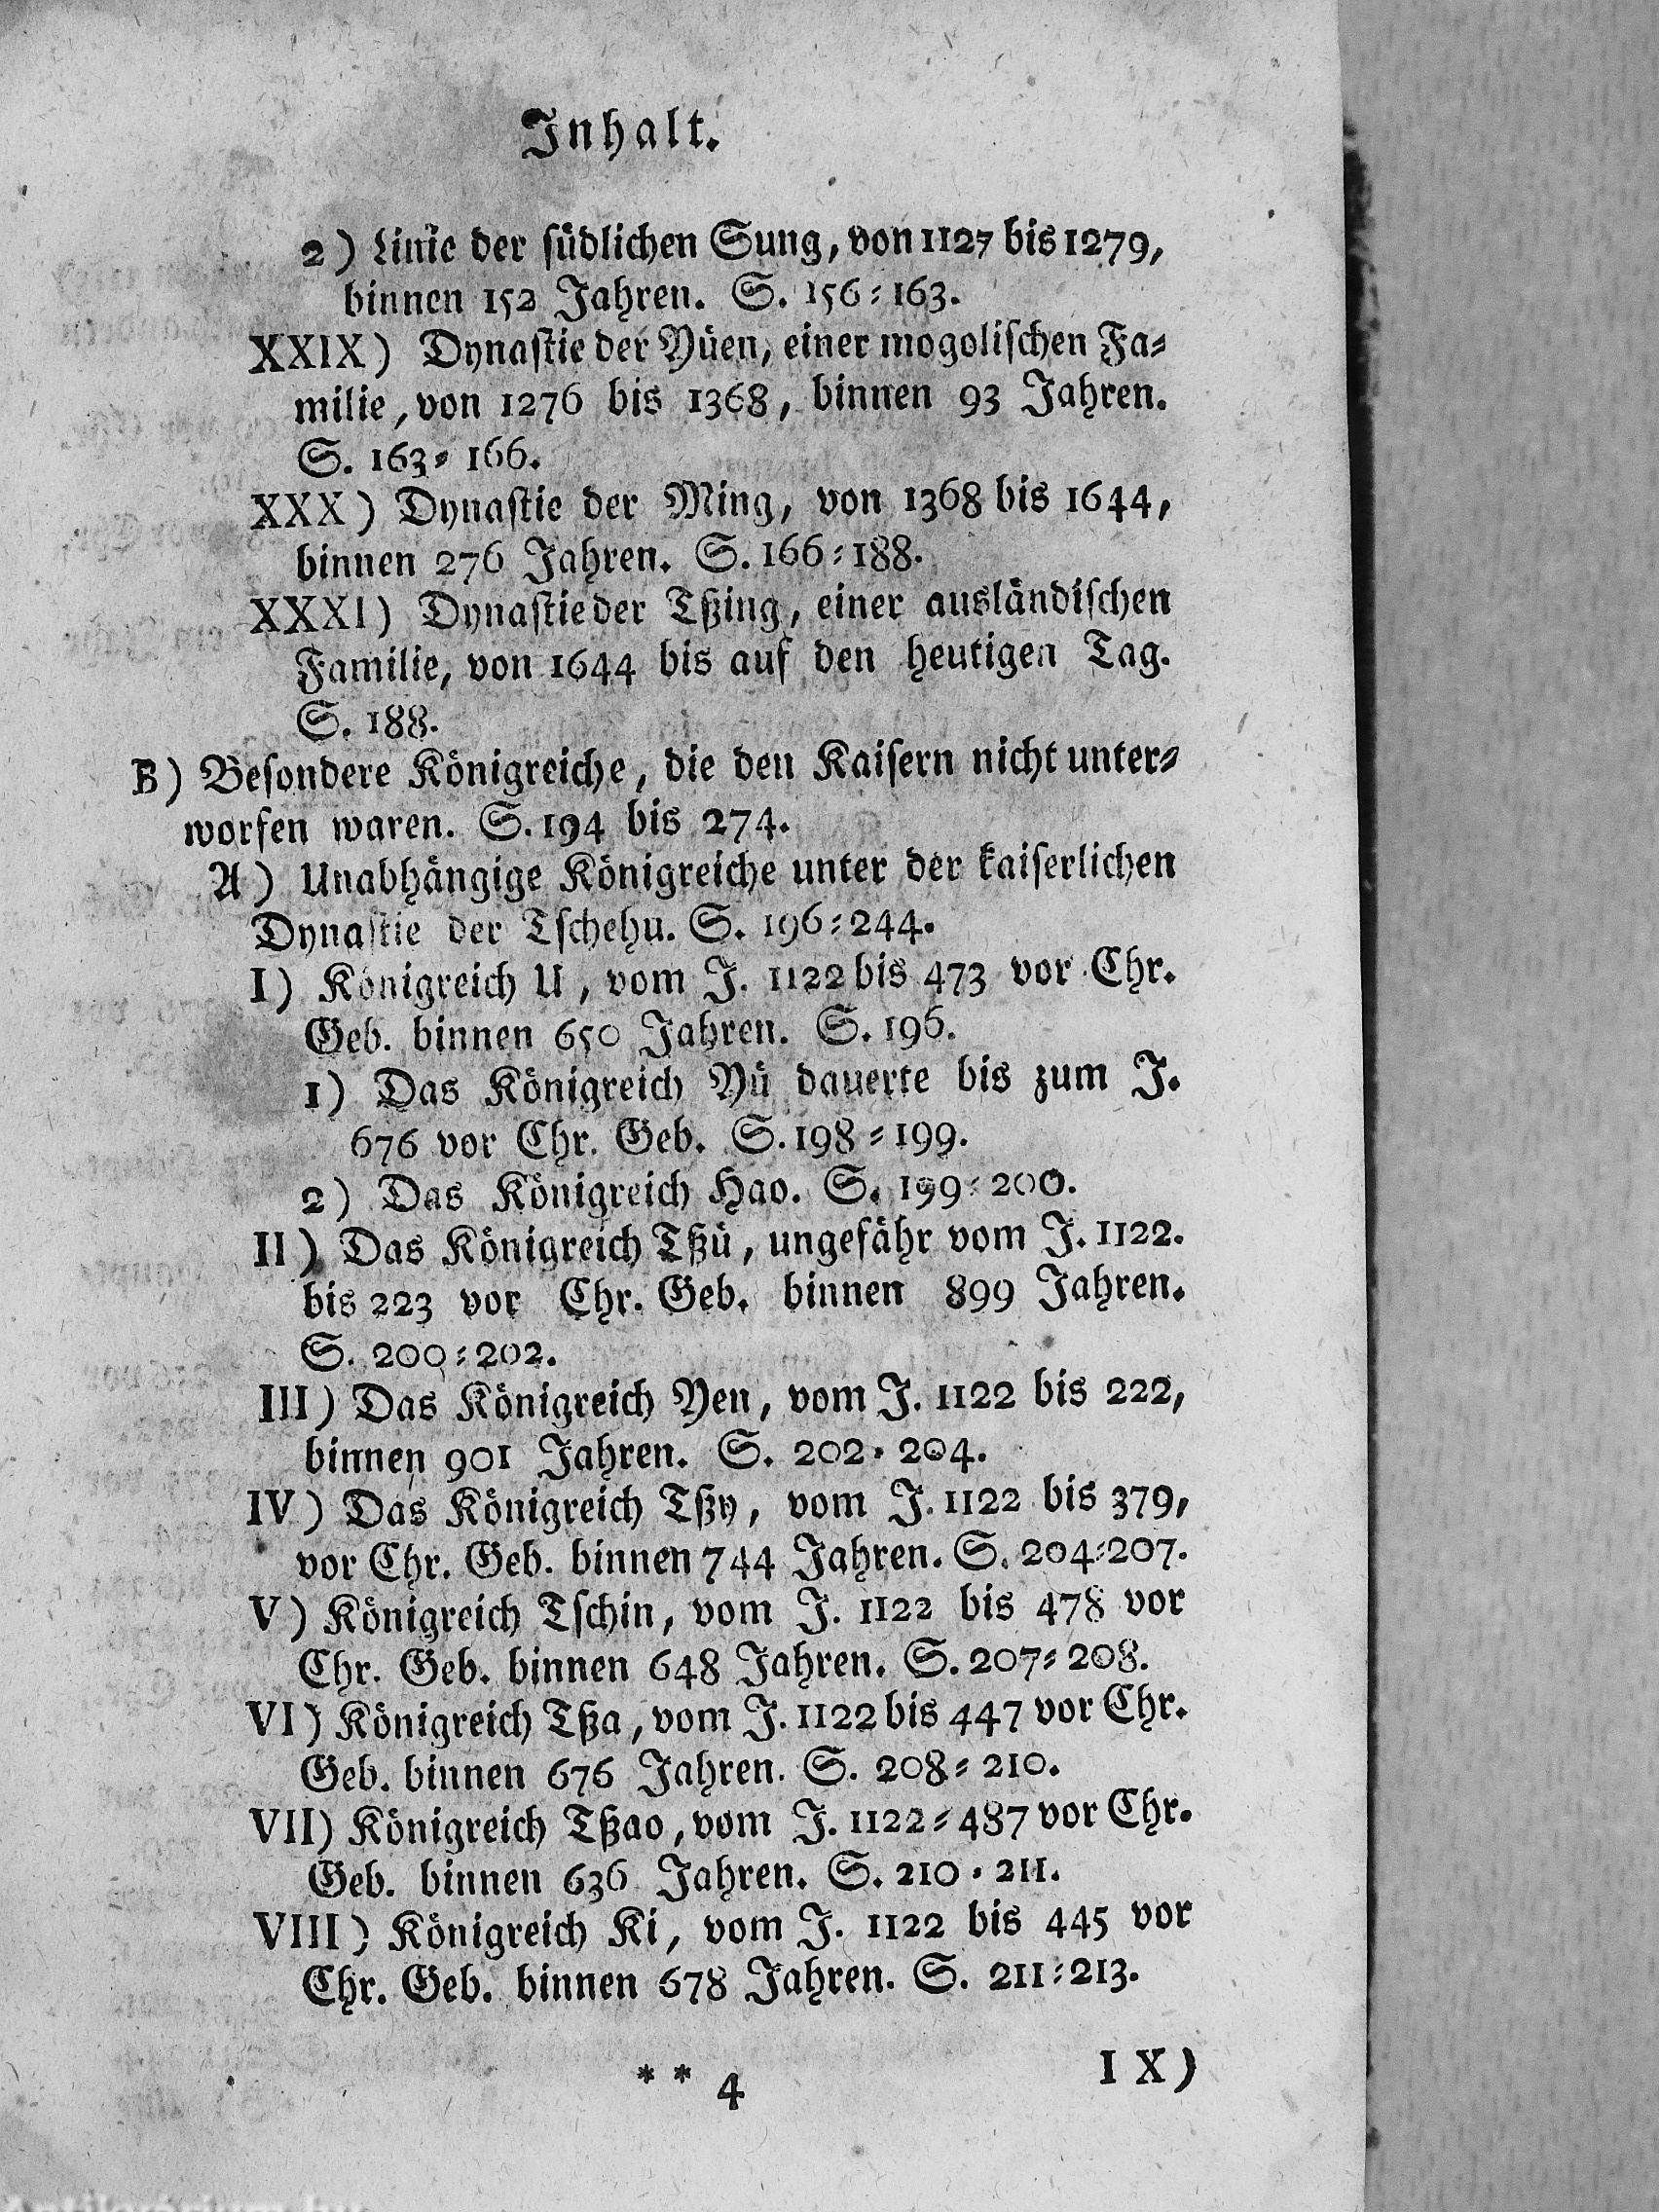 Inhalt.
2) Linie der südlichen Sung, von 1127 bis 1279,
binnen 152 Jahren. S. 156-163.
XXIX) Dynastie der Yüen, einer mogolischen Fa-
milie, von 1276 bis 1368, binnen 93 Jahren.
S. 163-166.
XXX) Dynastie der Ming, von 1368 bis 1644,
binnen 276 Jahren. S. 166-188.
XXXI) Dynastie der Tßing, einer ausländischen
Familie, von 1644 bis auf den heutigen Tag.
S. 188.
B) Besondere Königreiche, die den Kaisern nicht unter-
worfen waren. S. 194 bis 274.
A) Unabhängige Königreiche unter der kaiserlichen
Dynastie der Tschehu. S. 196-244.
I) Königreich U, vom J. 1122 bis 473 vor Chr.
Geb. binnen 650 Jahren. S. 196.
1) Das Königreich Yü dauerte bis zum J.
676 vor Chr. Geb. S. 198-199.
2) Das Königreich Hao. S. 199-200.
II) Das Königreich Tßü, ungefähr vom J. 1122.
bis 223 vor Chr. Geb. binnen 899 Jahren.
S. 200-202.
III) Das Königreich Yen, vom J. 1122 bis 222,
binnen 901 Jahren. S. 202-204.
IV) Das Königreich Tßy, vom J. 1122 bis 379,
vor Chr. Geb. binnen 744 Jahren. S. 204-207.
V) Königreich Tschin, vom J. 1122 bis 478 vor
Chr. Geb. binnen 648 Jahren. S. 207-208.
VI) Königreich Tßa, vom J. 1122 bis 447 vor Chr.
Geb. binnen 676 Jahren. S. 208-210.
VII) Königreich Tßao, vom J. 1122-487 vor Chr.
Geb. binnen 636 Jahren. S. 210-211.
VIII) Königreich Ki, vom J. 1122 bis 445 vor
Chr. Geb. binnen 678 Jahren. S. 211-213.
* * 4
IX)